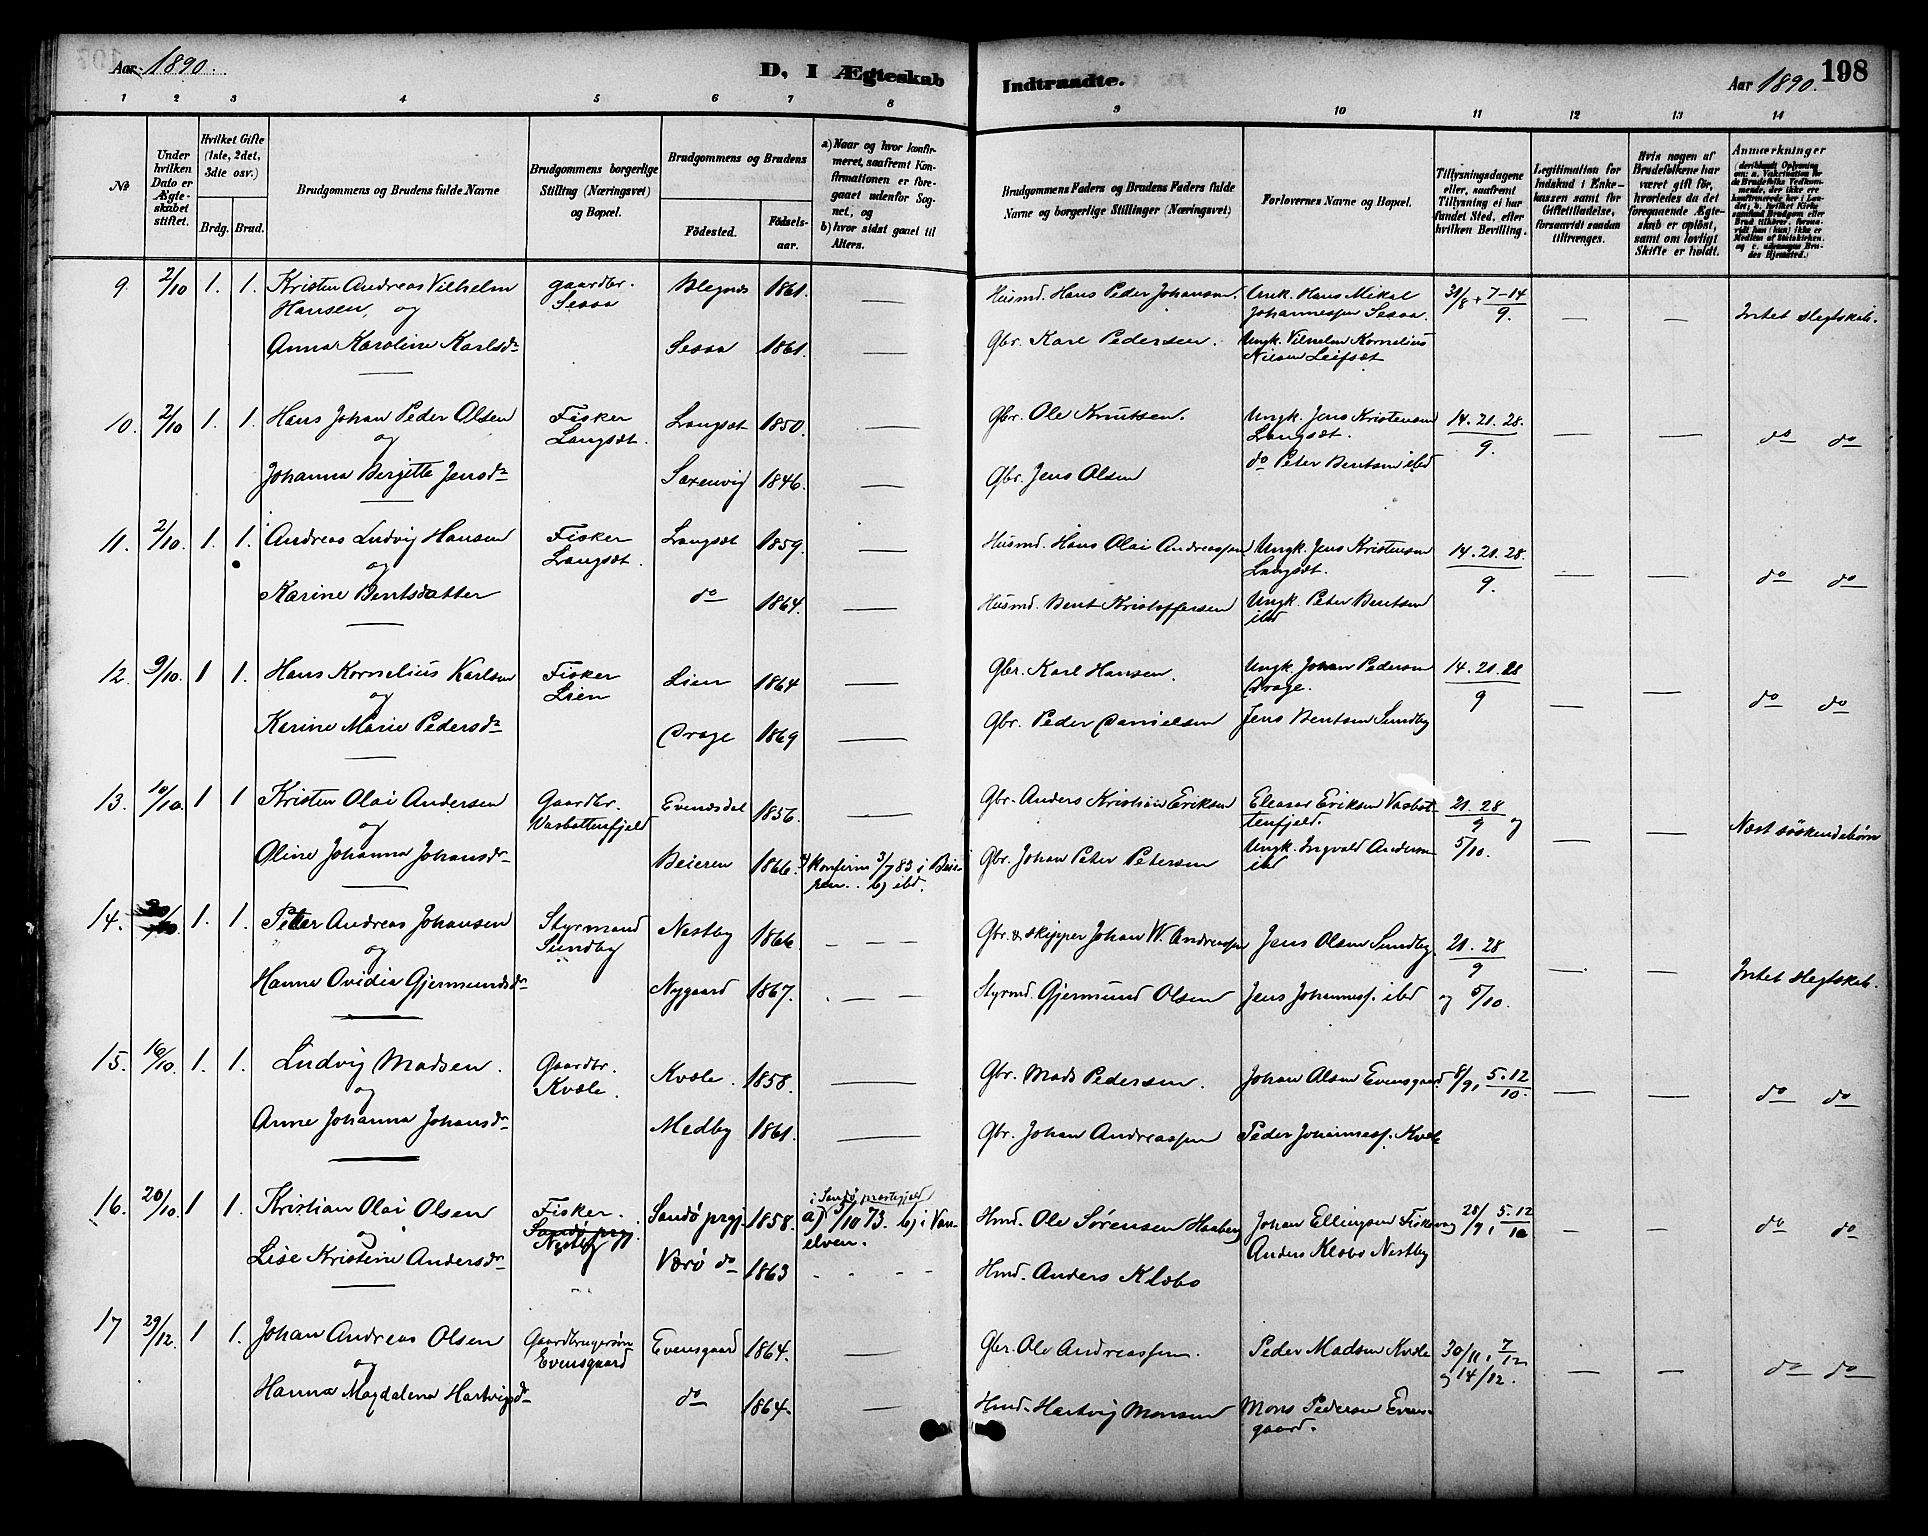 Aar 1890.
D, I Ægteskab
Indtraadte.
Aar 1890.
198
1 2 3 4 5 6 7 8 9 10 11 12 13 14
No
Under hvilken Dato er Ægteskabet stiftet.
Hvilket Gifte (1ste, 2det, 3die osv.)
Brdg. Brud.
Brudgommens og Brudens fulde Navne
Brudgommens borgerlige Stilling (Næringsvei) og Bopæl.
Brudgommens og Brudens
Födested. Födselsaar.
a) Naar og hvor konfirmeret, saafremt Konfirmationen er foregaaet udenfor Sognet, og
b) hvor sidst gaaet til Alters.
Brudgommens Faders og Brudens Faders fulde Navne og borgerlige Stillinger (Næringsvei)
Forlovernes Navne og Bopæl.
Tillysningsdagene eller, saafremt Tillysning ei har fundet Sted, efter hvilken Bevilling.
Legitimation for Indskud i Enkekassen samt for Giftetilladelse, forsaavidt saadan tiltrænges.
Hvis nogen af Brudefolkene har været gift før, hvorledes da det foregaaende Ægteskab er opløst, samt om lovligt Skifte er holdt.
Anmærkninger
9. 2/10 1. 1. Kristen Andreas Vilhelm gaardbr. 1861. — Husmd. Hans Peder Johansen. Ungk. Hans Mikal 31/8 + 7-14/9. — — Intet slegtskab.
Hansen, og Sesaa Johannessen Sesaa.
Anna Karoline Karlsdr Sesaa 1861. — Gbr. Karl Pedersen. Ungk. Vilhelm Kornelius
Nilsen Leifset
10. 2/10 1. 1. Hans Johan Peder Olsen Fisker Langset 1850. — Gbr. Ole Knutsen. Ungk. Jens Kristensen 14. 21. 28./9. — — do do
og Langsæt. Langsæt.
Johanna Bergitte Jensdr Saxenvig 1846. — Gbr. Jens Olsen do Peter Bentsen ibd
11. 2/10. 1. 1. Andreas Ludvig Hansen Fisker Langsæt 1859. — Husmd. Hans Olai Andreassen Ungk. Jens Kristensen 14. 21. 28./9. — — do do
og Langsæt. Langsæt.
Karine Bentsdatter do 1864. — Husmd. Bent Kristoffersen Ungk. Peter Bentsen
ibd
12. 9/10. 1 1. Hans Kornelius Karlsen Fisker Lien 1864 — Gbr. Karl Hansen. Ungk. Johan Pedersen 14. 21. 28/9 — — do do
og Lien Drage.
Karine Marie Pedersdr Drage 1869 — Gbr. Peder Danielsen Jens Bentsen Sundby
13. 10/10. 1 1 Kristen Olai Andersen Gaardbr. Evensdal 1856. — Gbr. Anders Kristian Eriksen Eleasar Eriksen Vasbot- 21. 28/9 og — — Næst søskendebørn
og Vasbottenfjeld tenfjeld.
Oline Johanna Johansdr. Beieren 1866. a) Konfirm 3/7 83 i Bei- Gbr. Johan Peter Petersen Ungk. Ingvald Andersen 5/10.
ren. b) ibd. ibd
14. 1. 1. Peter Andreas Johansen Styrmand Nestby 1866. — — — Gbr. & skipper Johan W. Andreassen Jens Olsen Sundby. 21. 28/9 — — Intet slegtskab.
og Sundby
Hanna Ovidia Gjermundsdr. Nygaard 1867. — — Styrmd. Gjermund Olsen Jens Johanness. ibd og 5/10.
15. 16/10. 1. 1. Ludvig Madsen. Gaardbr. Kvæle. 1858. — Gbr. Mads Pedersen. Johan Olsen Evensgaard 8/9, 5. 12/10. — — do do
og Kvæle.
Anne Johanna Johansdr. Medby 1861. — Gbr. Johan Andreassen Peder Johanness. Kvæle
16. 20/10. 1 1. Kristian Olai Olsen Fisker. Sandö prgj. 1858. i Sandö prestegjeld a) 5/10 73. b) i Van- Hmd. Ole Sörensen Haaberg Johan Ellingsen Fiskevaag 28/9, 5. 12/10 — — do do
og Sandö prgj. Nestby elven. Anders Klæbo Nestby
Lise Kristine Andersdr. Værö do 1863 — — Hmd. Anders Klæbo
17 29/12. 1 1. Johan Andreas Olsen Gaardbrugersøn Evensgaard 1864. — Gbr. Ole Andreassen. Peder Madsen Kvæle 30/11, 7/12 — — do do
og Evensgaard og 14/12.
Hanna Magdalena Hartvigsdr do 1864. — Hmd. Hartvig Monsen Mons Pedersen Evens-
gaard.